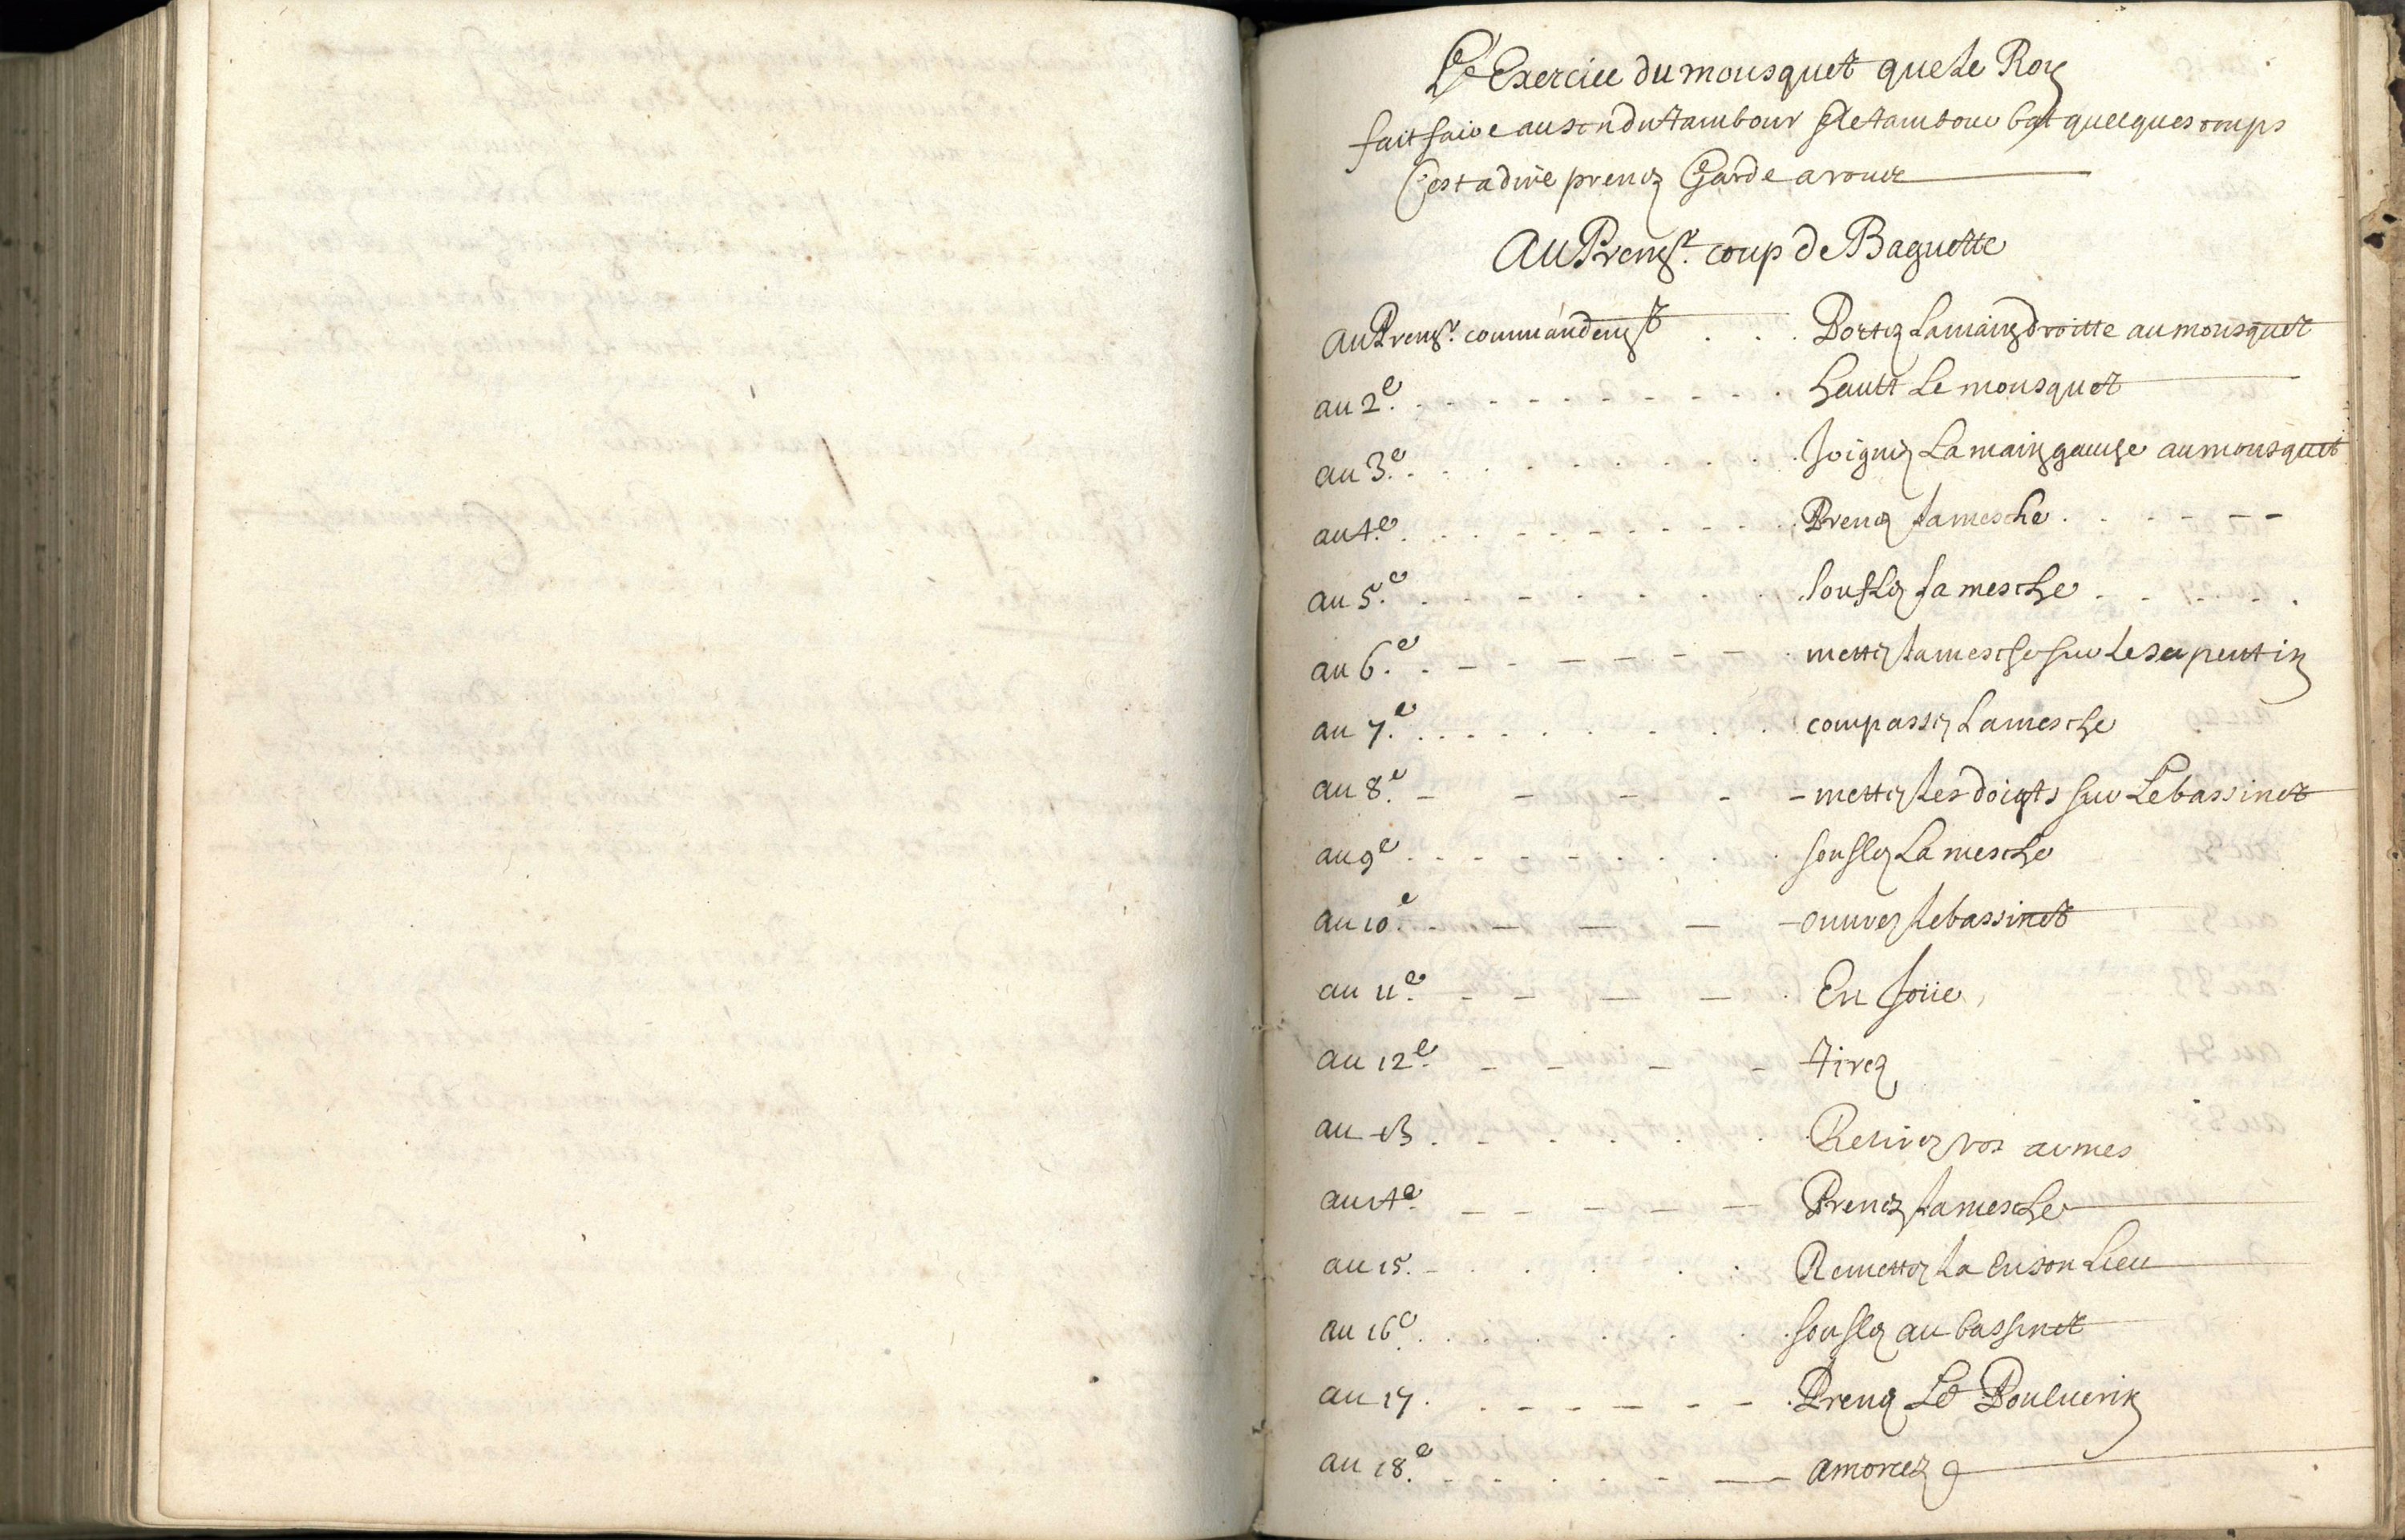 L'Exercice du mousquet que le Roy
fait faire au son du tambour le tambour bat quelques coups
C'est a dire prenez Garde a vous
Au Premr. coup de Baguette
Au Premr. commandemt . . . Portez la main droitte au mousquet
au 2e. Hautt Le mousquet
au 3e. Joignez La main gauche au mousquet
au 4e. Prenez la mesche
au 5e. Souflez la mesche
au 6e. mettez la mesche sur le serpentin
au 7e. compassez La mesche
au 8e. mettez les doigts sur Le bassinet
au 9e. souflez La mesche
au 10e. ouurez le bassinet
au 11e. En Joüe
au 12e. tirez
au 13. Retirez vos armes
au 14e. Prenez la mesche
au 15. Remettez la en son Lieu
au 16e. souflez au bassinet
au 17. Prenez Le Pouluerin
au 18e. amorcez